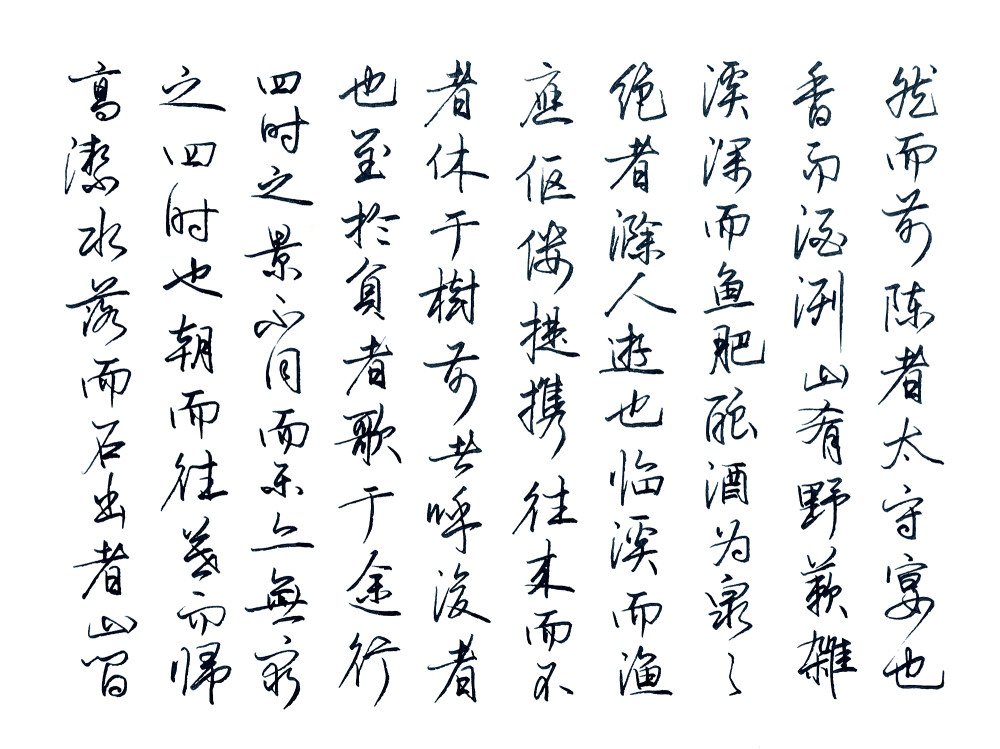 然而前陈者太守宴也
香而酒洌山肴野蔌雜
溪深而鱼肥酿酒为泉々
绝者滁人遊也临溪而渔
應伛偻提携往来而不
者休于樹前者呼後者
也至於负者歌于途行
四时之景不同而乐亦無穷
之四时也朝而往暮而帰
高潔水落而石出者山间